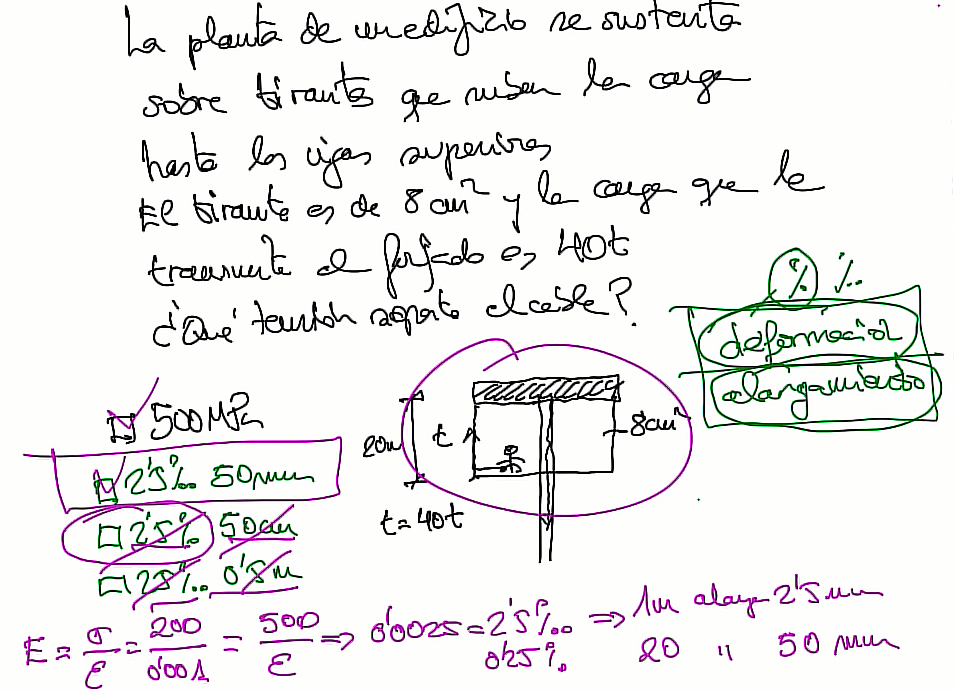 La planta de un edifizio se sustenta
sobre tirantes que suben la carga
hasta las vigas superiores
El tirante es de 8 cm² y la carga que le
transmite el forjado es 40t
¿Qué tensión soporta el cable?
% ‰
deformación
alargamiento
500 MPa
2'5‰ 50mm
2'5% 50cm
25‰ 0'5m
20m
t
8cm²
t = 40t
E = σ/ε = 200/0'001 = 500/ε ⇒ 0'0025 = 2'5‰ ⇒ 1m alarga 2'5mm
0'25%
20 " 50 mm